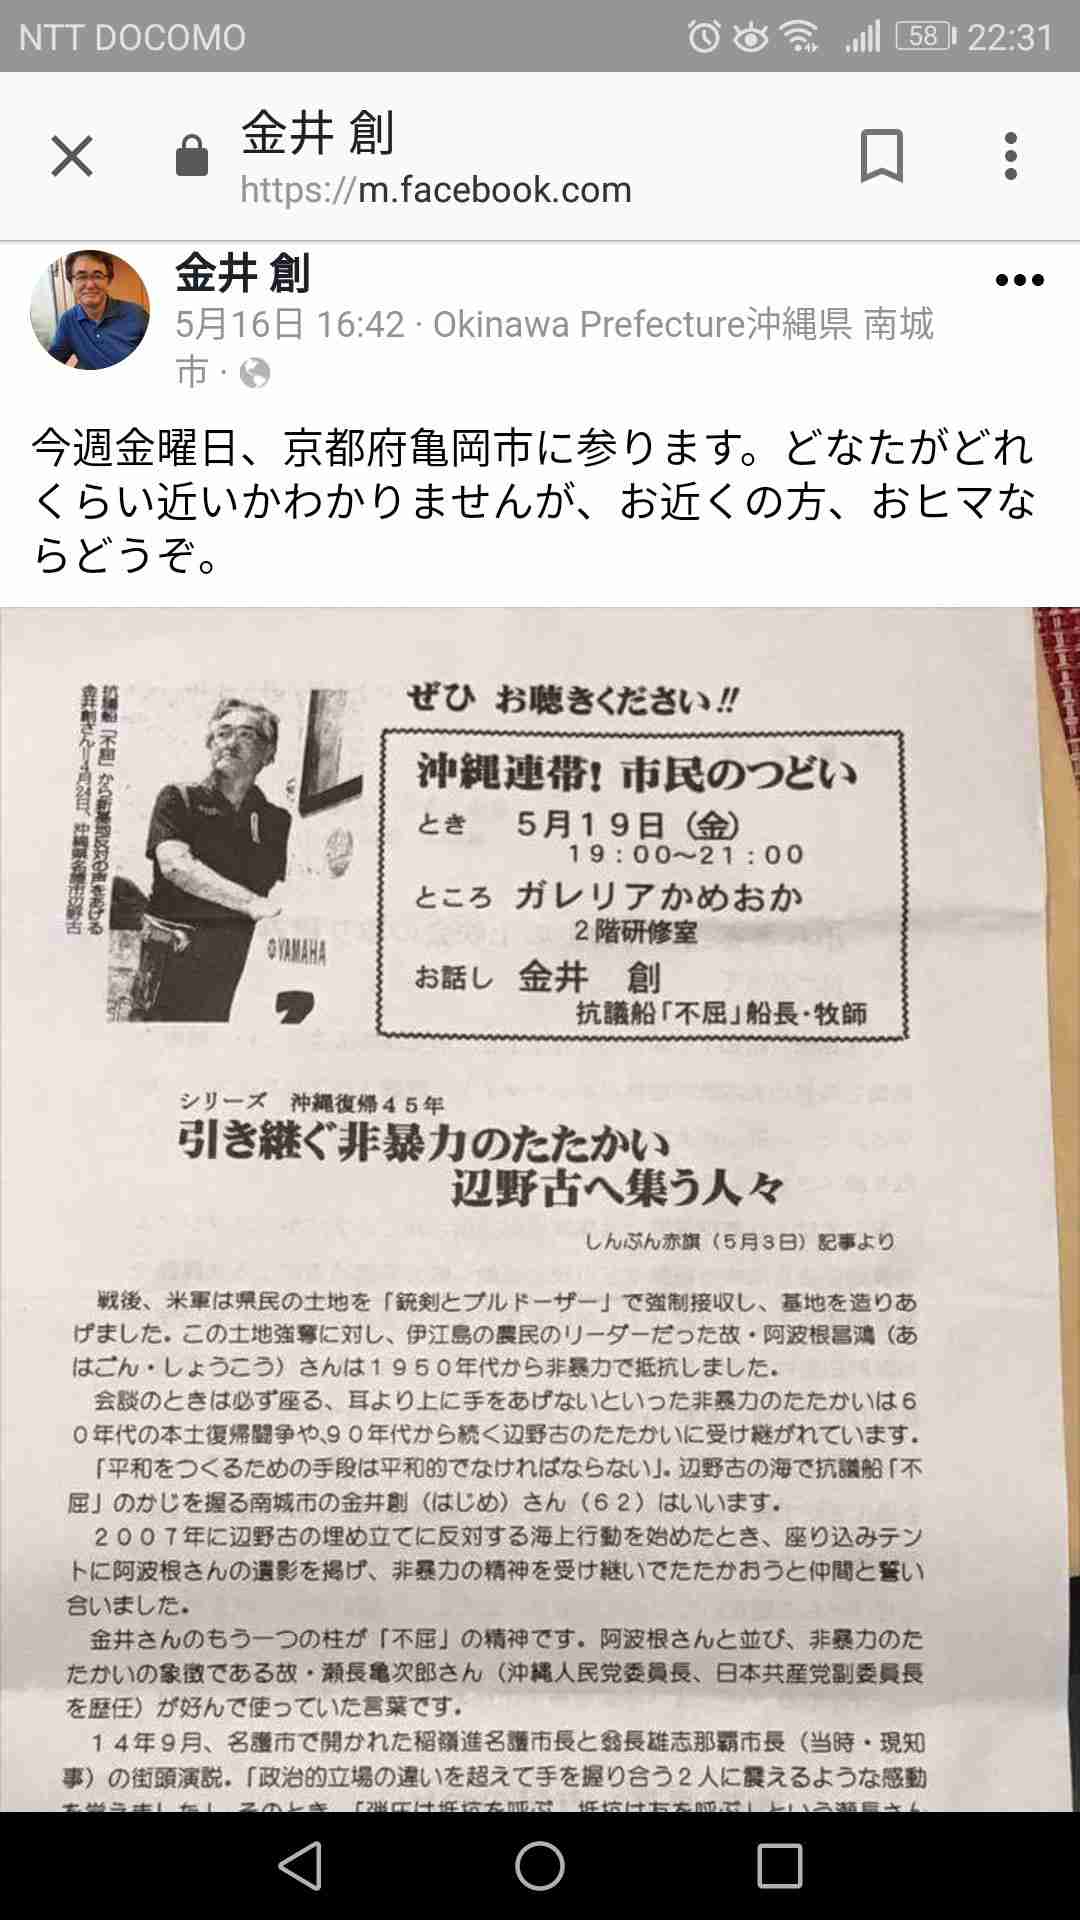 NTT DOCOMO
58 22:31
金井 創
https://m.facebook.com
金井 創
5月16日 16:42 · Okinawa Prefecture沖縄県 南城
市 ·
今週金曜日、京都府亀岡市に参ります。どなたがどれ
くらい近いかわかりませんが、お近くの方、おヒマな
らどうぞ。
抗議船「不屈」から新基地反対の声をあげる
金井創さん＝4月24日、沖縄県名護市辺野古
YAMAHA
ぜひ お聴きください!!
沖縄連帯! 市民のつどい
とき 5月19日（金）
19：00〜21：00
ところ ガレリアかめおか
2階研修室
お話し 金井 創
抗議船「不屈」船長・牧師
シリーズ 沖縄復帰45年
引き継ぐ非暴力のたたかい
辺野古へ集う人々
しんぶん赤旗（5月3日）記事より
戦後、米軍は県民の土地を「銃剣とブルドーザー」で強制接収し、基地を造りあ
げました。この土地強奪に対し、伊江島の農民のリーダーだった故・阿波根昌鴻（あ
はごん・しょうこう）さんは1950年代から非暴力で抵抗しました。
会談のときは必ず座る、耳より上に手をあげないといった非暴力のたたかいは6
0年代の本土復帰闘争や、90年代から続く辺野古のたたかいに受け継がれています。
「平和をつくるための手段は平和的でなければならない」。辺野古の海で抗議船「不
屈」のかじを握る南城市の金井創（はじめ）さん（62）はいいます。
2007年に辺野古の埋め立てに反対する海上行動を始めたとき、座り込みテン
トに阿波根さんの遺影を掲げ、非暴力の精神を受け継いでたたかおうと仲間と誓い
合いました。
金井さんのもう一つの柱が「不屈」の精神です。阿波根さんと並び、非暴力のた
たかいの象徴である故・瀬長亀次郎さん（沖縄人民党委員長、日本共産党副委員長
を歴任）が好んで使っていた言葉です。
14年9月、名護市で開かれた稲嶺進名護市長と翁長雄志那覇市長（当時・現知
事）の街頭演説。「政治的立場の違いを超えて手を握り合う2人に震えるような感動
を覚えました」。そのとき、「弾圧は抵抗を呼ぶ、抵抗は友を呼ぶ」という瀬長さん